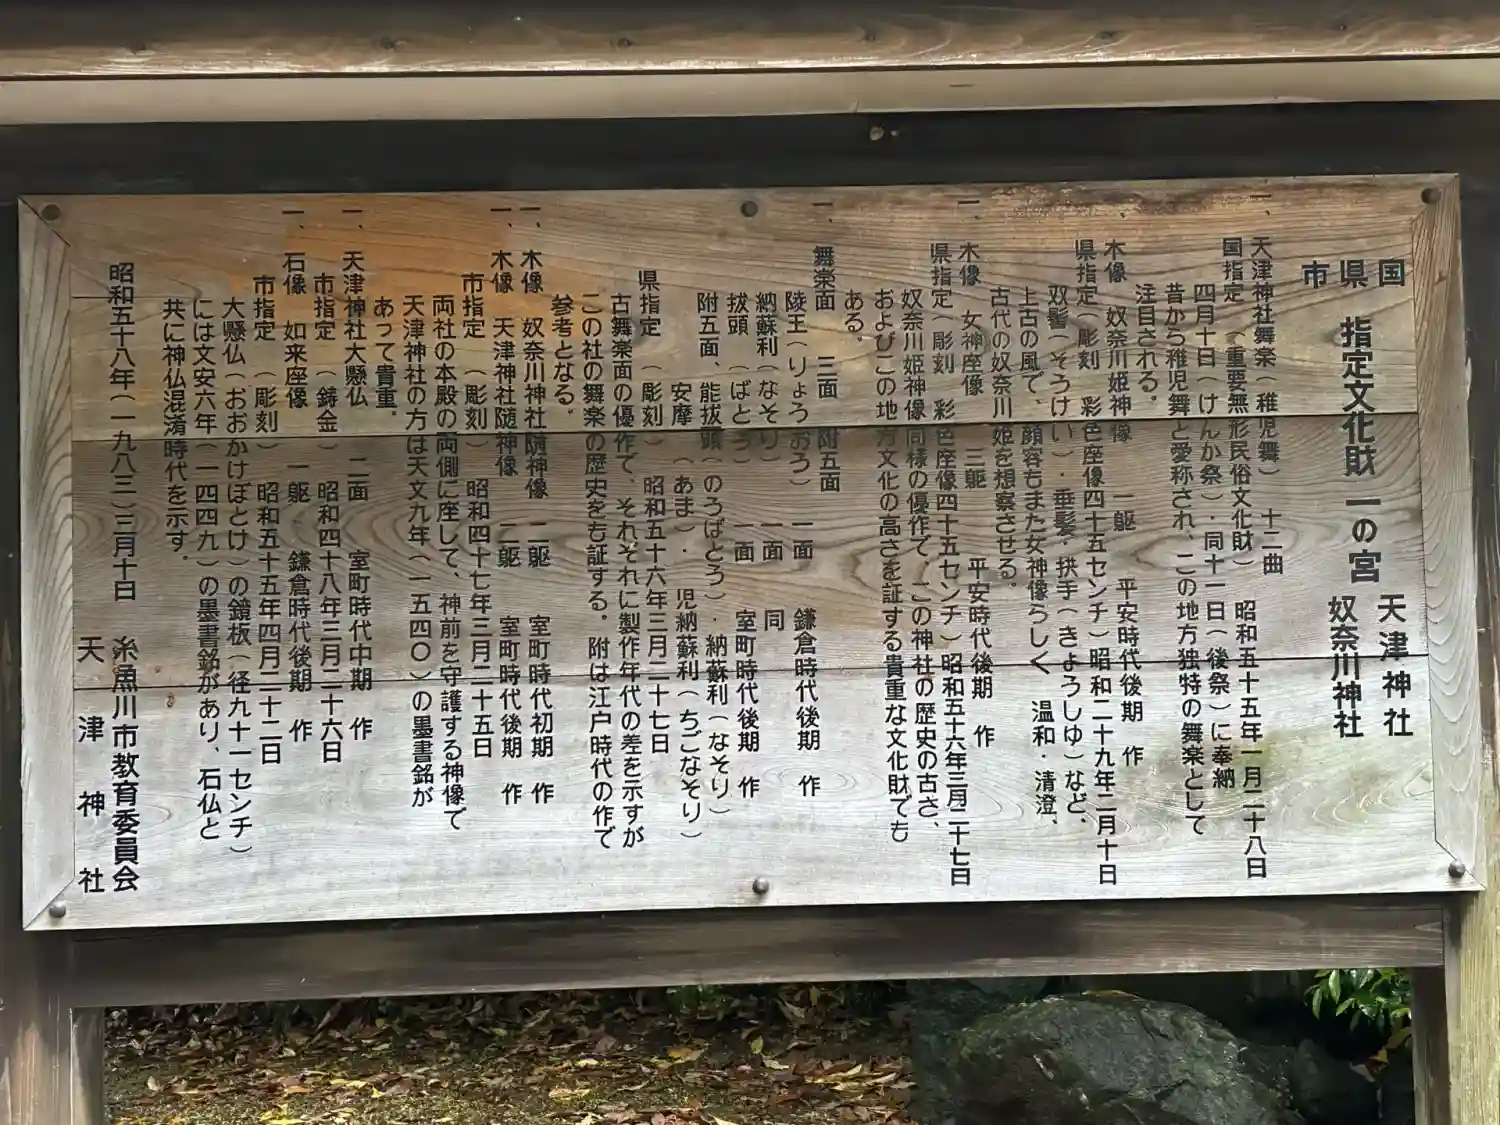 国
県 指定文化財 一の宮
市
天津神社
奴奈川神社
一、天津神社舞楽(稚児舞) 十二曲
国指定 (重要無形民俗文化財) 昭和五十五年一月二十八日
四月十日(けんか祭)・同十一日(後祭)に奉納
昔から稚児舞と愛称され、この地方独特の舞楽として
注目される。
一、木像 奴奈川姫神像 一躯 平安時代後期 作
県指定(彫刻 彩色座像四十五センチ)昭和二十九年二月十日
双髻(そうけい)・垂髪・拱手(きょうしゆ)など、
上古の風で、顔容もまた女神像らしく 温和・清澄、
古代の奴奈川姫を想察させる。
一、木像 女神座像 三躯 平安時代後期 作
県指定(彫刻 彩色座像四十五センチ)昭和五十六年三月二十七日
奴奈川姫神像同様の優作で、この神社の歴史の古さ、
およびこの地方文化の高さを証する貴重な文化財でも
ある。
一、舞楽面 三面 附五面
陵王(りょうおう) 一面 鎌倉時代後期 作
納蘇利(なそり) 一面 同
抜頭 (ばとう) 一面 室町時代後期 作
附五面、能抜頭(のうばとう)・納蘇利(なそり)
安摩 (あま)・児納蘇利(ちごなそり)
県指定 (彫刻) 昭和五十六年三月二十七日
古舞楽面の優作で、それぞれに製作年代の差を示すが
この社の舞楽の歴史をも証する。附は江戸時代の作で
参考となる。
一、木像 奴奈川神社随神像 二躯 室町時代初期 作
一、木像 天津神社随神像 二躯 室町時代後期 作
市指定 (彫刻) 昭和四十七年三月二十五日
両社の本殿の両側に座して、神前を守護する神像で
天津神社の方は天文九年(一五四〇)の墨書銘が
あって貴重。
一、天津神社大懸仏 二面 室町時代中期 作
市指定 (鋳金) 昭和四十八年三月二十六日
一、石像 如来座像 一躯 鎌倉時代後期 作
市指定 (彫刻) 昭和五十五年四月二十二日
大懸仏(おおかけぼとけ)の鏡板(径九十一センチ)
には文安六年(一四四九)の墨書銘があり、石仏と
共に神仏混淆時代を示す。
昭和五十八年(一九八三)三月十日 糸魚川市教育委員会
天津神社